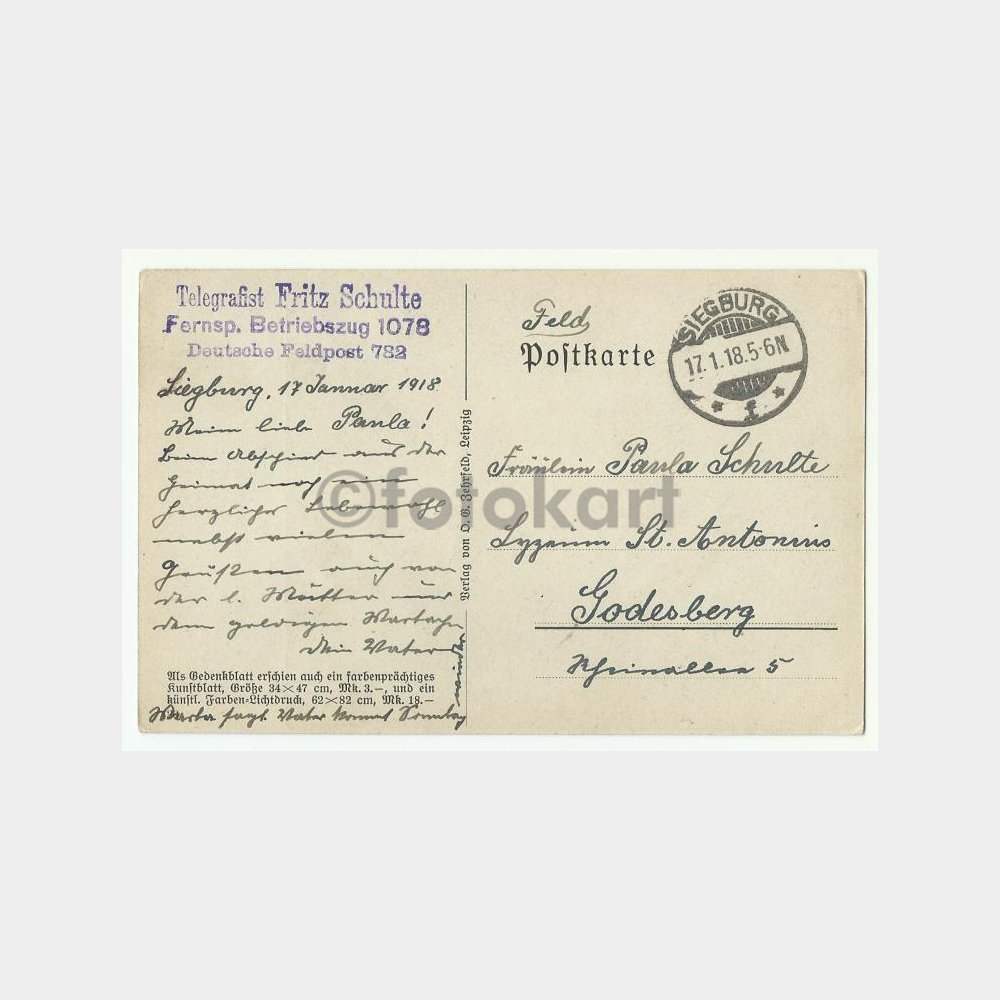 Telegrafist Fritz Schulte
Fernsp. Betriebszug 1078
Deutsche Feldpost 782
Siegburg, 17 Januar 1918
Meine liebe Paula!
Beim Abschied aus der
Heimat noch ein
herzliches Lebewohl
nebst vielen
Grüßen auch von
der l. Mutter und
dem
Dein Vater
wieder
Als Gedenkblatt erschien auch ein farbenprächtiges
Kunstblatt, Größe 34×47 cm, Mk. 3.–, und ein
künstl. Farben-Lichtdruck, 62×82 cm, Mk. 18.–
Marta sagt. Vater kommt Sonntag
Verlag von D. G. Zehrfeld, Leipzig
Feld
Postkarte
SIEGBURG
17.1.18.5-6N
* f *
Fräulein Paula Schulte
Lyzeum St. Antonius
Godesberg
Rheinallee 5
©fotokart